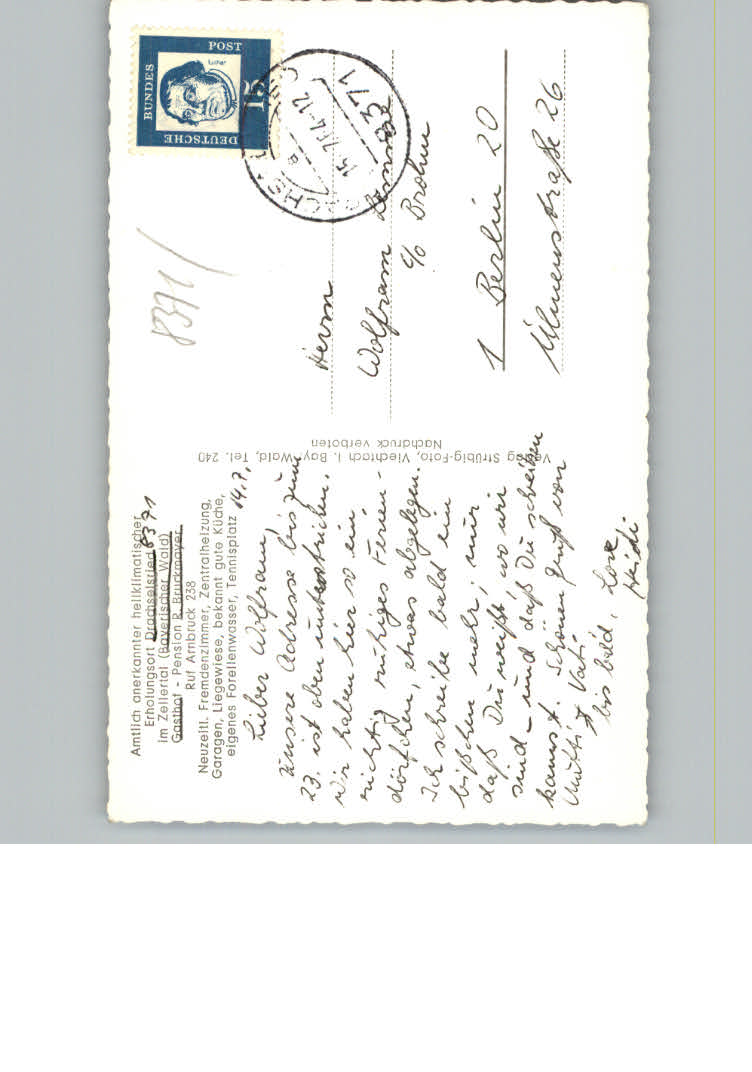 Amtlich anerkannter heilklimatischer
Erholungsort Drachselsried 8371
im Zellertal (Bayerischer Wald)
Gasthof - Pension R. Bruckmayer
Ruf Arnbruck 238
Neuzeitl. Fremdenzimmer, Zentralheizung,
Garagen, Liegewiese, bekannt gute Küche,
eigenes Forellenwasser, Tennisplatz
14.7.
Lieber Wolfram,
Unsere Adresse bis zum
23. ist oben unterstrichen.
Wir haben hier so ein
richtig ruhiges Ferien-
dörfchen, etwas abgelegen.
Ich schreibe bald ein
bißchen mehr; nur
daß Du weißt, wo wir
sind - und daß Du schreiben
kannst. Schönen Gruß von
Mutti + Vati
bis bald, Love
Heidi
Verlag Strübig-Foto, Viechtach i. Bay. Wald, Tel. 240
Nachdruck verboten
DEUTSCHE
BUNDES
POST
15
Luther
15.7.64-12
a
8371
8371
Herrn
Wolfram
c/o Brohm
1 Berlin 20
Ulmenstraße 26